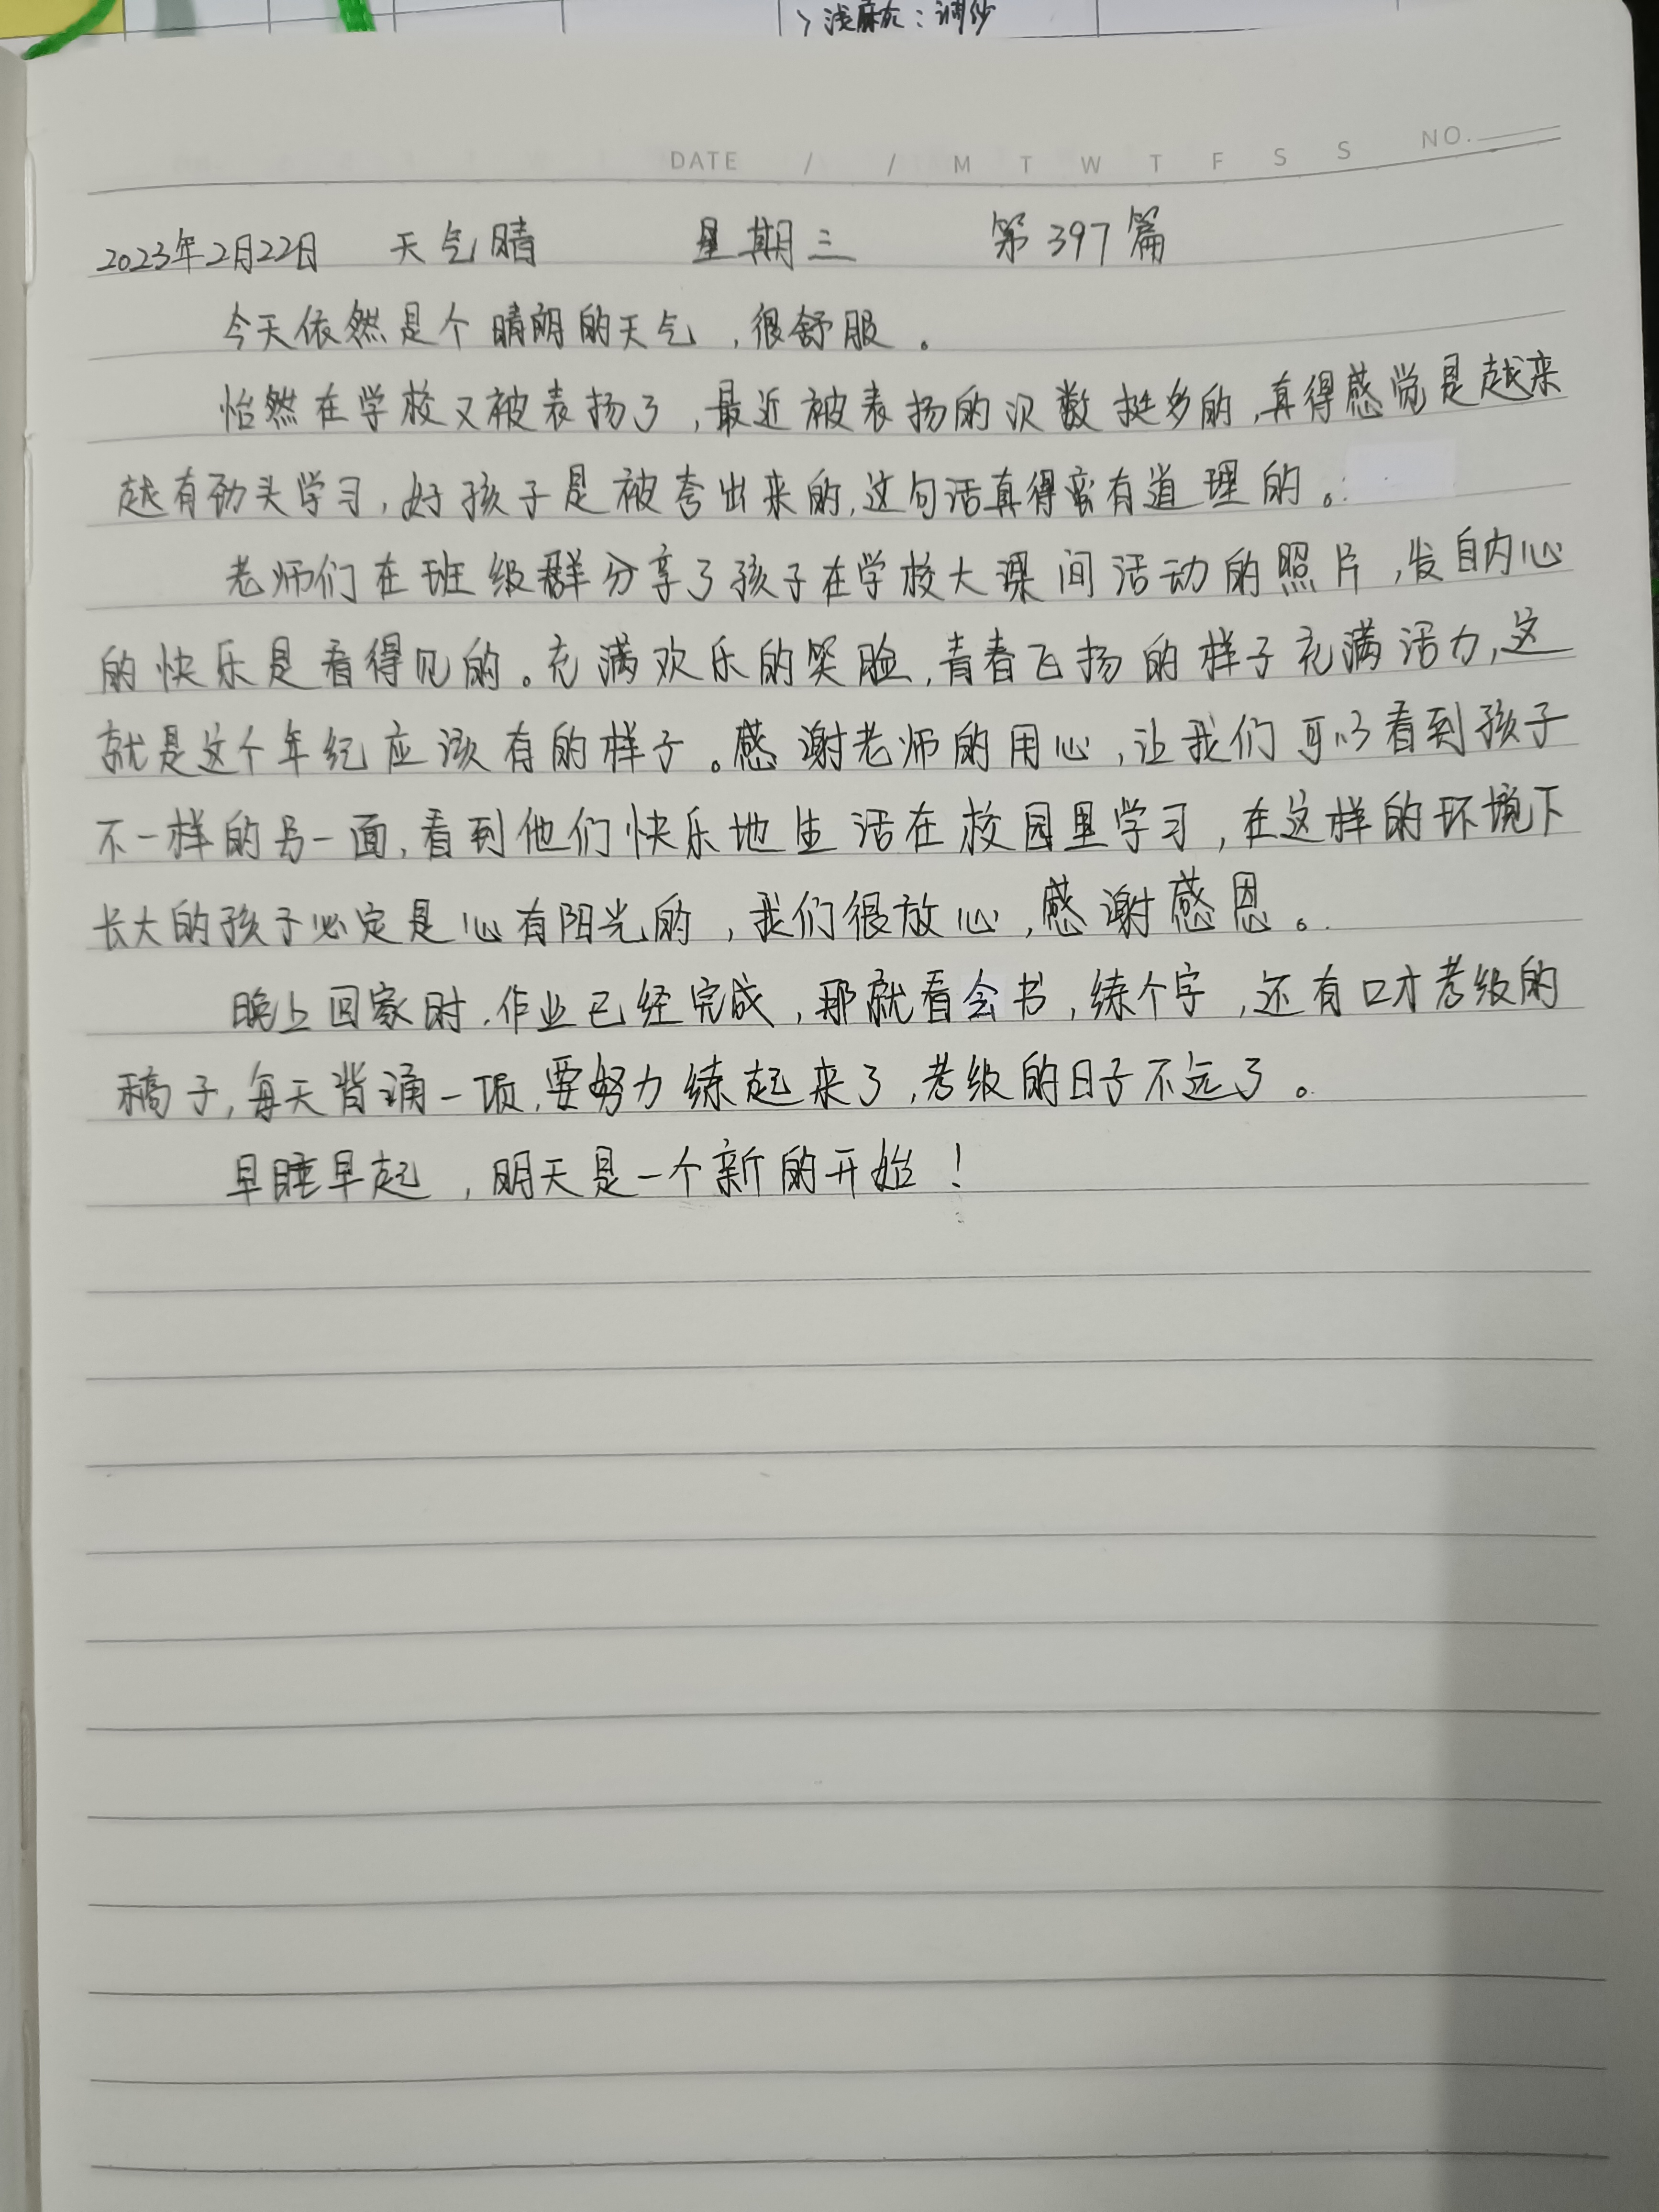 浅麻灰：润纱
DATE / / M T W T F S S NO.
2023年2月22日 天气晴 星期三 第397篇
今天依然是个晴朗的天气，很舒服。
怡然在学校又被表扬了，最近被表扬的次数挺多的，真得感觉是越来
越有劲头学习，好孩子是被夸出来的，这句话真得蛮有道理的。
老师们在班级群分享了孩子在学校大课间活动的照片，发自内心
的快乐是看得见的。充满欢乐的笑脸，青春飞扬的样子充满活力，这
就是这个年纪应该有的样子。感谢老师的用心，让我们可以看到孩子
不一样的另一面，看到他们快乐地生活在校园里学习，在这样的环境下
长大的孩子必定是心有阳光的，我们很放心，感谢感恩。
晚上回家时，作业已经完成，那就看会书，练个字，还有口才考级的
稿子，每天背诵一项，要努力练起来了，考级的日子不远了。
早睡早起，明天是一个新的开始！